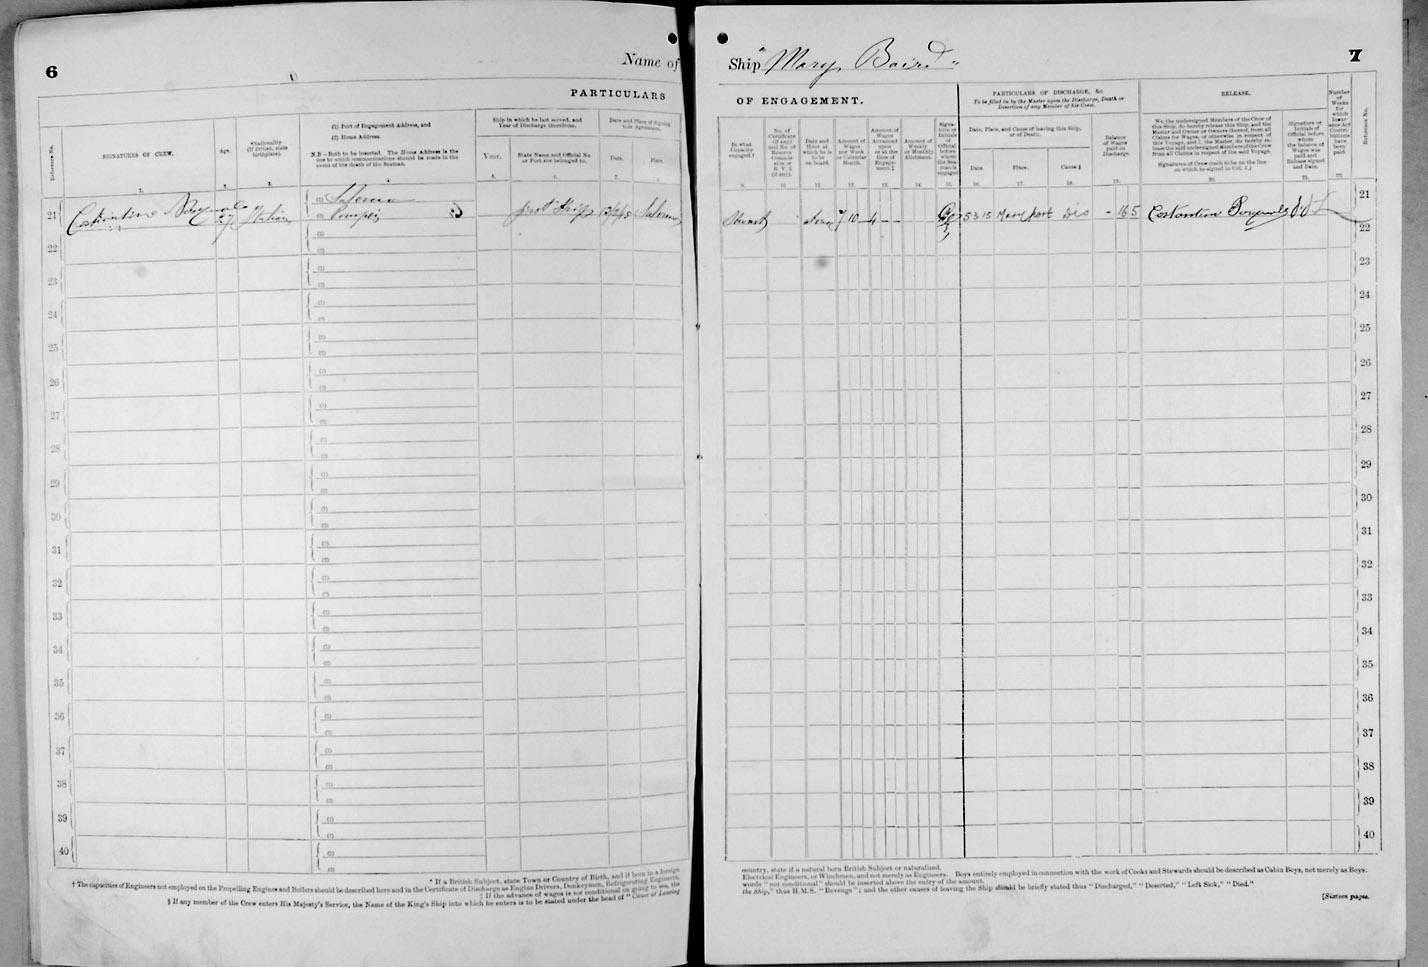 6
Name of
Ship "Mary Baird"
7
PARTICULARS
OF ENGAGEMENT.
Reference No.
SIGNATURES OF CREW.
Age.
Nationality
(If British, state
birthplace).
(1) Port of Engagement Address, and
(2) Home Address.
N.B.—Both to be inserted. The Home Address is the
one to which communications should be made in the
event of the death of the Seaman.
Ship in which he last served, and
Year of Discharge therefrom.
Year.
State Name and Official No.
or Port she belonged to.
Date and Place of Signing
this Agreement.
Date.
Place.
In what
Capacity
engaged.†
No. of
Certificate
(if any)
and No. of
Reserve
Commis-
sion or
R. V. 2
(if any).
Date and
Hour at
which he is
to be
on board.
Amount of
Wages
per Week
or Calendar
Month.
Amount of
Wages
Advanced
upon
or in the
time of
Engage-
ment.‡
Amount of
Weekly
or Monthly
Allotment.
Signa-
ture or
Initials
of
Official
before
whom
the Sea-
man is
engaged
PARTICULARS OF DISCHARGE, &c.
To be filled in by the Master upon the Discharge, Death or
Desertion of any Member of his Crew.
Date, Place, and Cause of leaving this Ship,
or of Death.
Date.
Place.
Cause.§
Balance
of Wages
paid on
Discharge.
RELEASE.
We, the undersigned Members of the Crew of
this Ship, do hereby release this Ship, and the
Master and Owner or Owners thereof, from all
Claims for Wages, or otherwise in respect of
this Voyage, and I, the Master, do hereby re-
lease the said undersigned Members of the Crew
from all Claims in respect of the said Voyage.
Signatures of Crew (each to be on the line
on which he signed in Col. 1.)
Signature or
Initials of
Official before
whom
the balance of
Wages was
paid and
Release signed
and Date.
Number
of
Weeks
for
which
Insur-
ance
Contri-
butions
have
been
paid.
Reference No.
21
27 Italian
(1) Salerno
(2) Pompei
first Ship
Salerno
7 10 4
5 3 15 Maryport Dis
- 16 5
21
22
23
24
25
26
27
28
29
30
31
32
33
34
35
36
37
38
39
40
* If a British Subject, state Town or Country of Birth, and if born in a foreign
country, state if a natural born British Subject or naturalized.
† The capacities of Engineers not employed on the Propelling Engines and Boilers should be described here and in the Certificate of Discharge as Engine Drivers, Donkeymen, Refrigerating Engineers,
Electrical Engineers, or Winchmen, and not merely as Engineers. Boys entirely employed in connection with the work of Cooks and Stewards should be described as Cabin Boys, not merely as Boys.
‡ If the advance of wages is not conditional on going to sea, the
words "not conditional" should be inserted above the entry of the amount.
§ If any member of the Crew enters His Majesty's Service, the Name of the King's Ship into which he enters is to be stated under the head of "Cause of Leaving
the Ship," thus H.M.S. "Revenge"; and the other causes of leaving the Ship should be briefly stated thus "Discharged," "Deserted," "Left Sick," "Died."
[Sixteen pages.